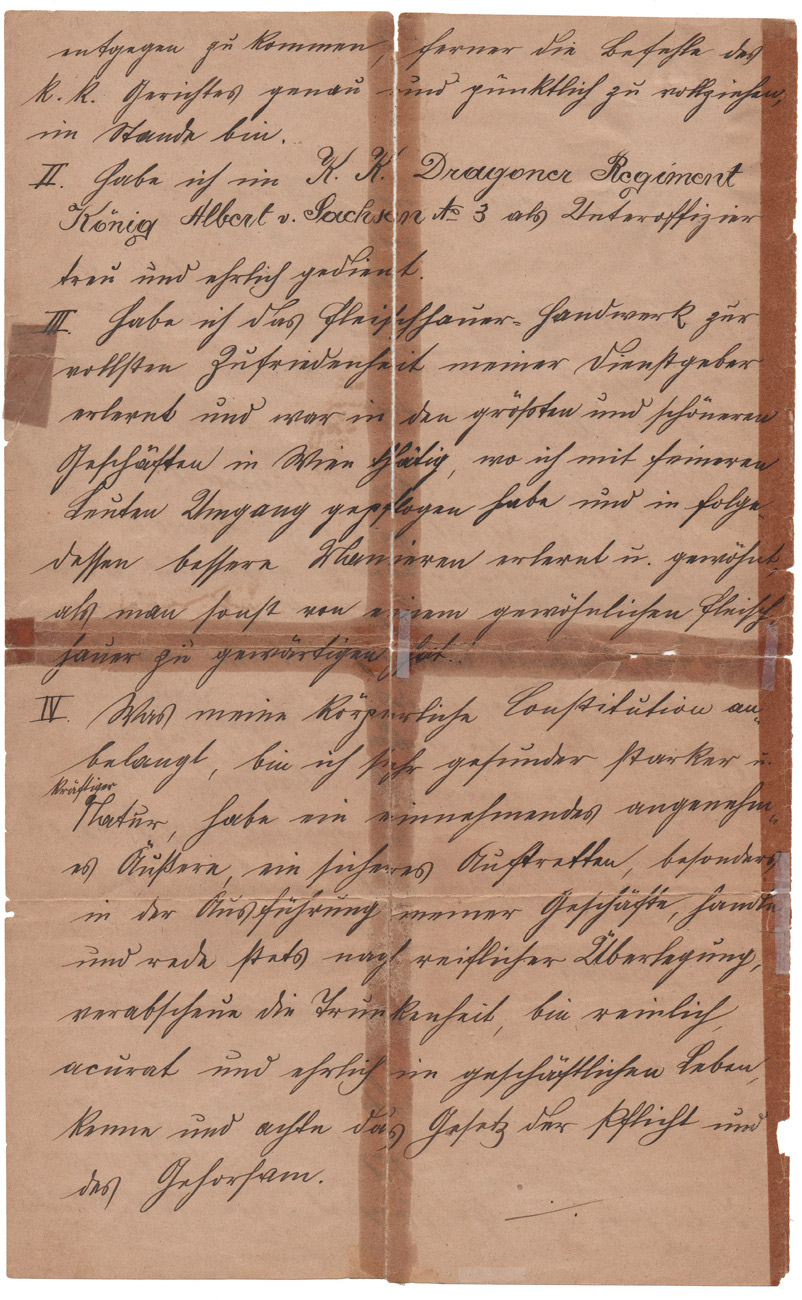 entgegen zu kommen, ferner die Befehle des
k. k. Gerichtes genau und pünktlich zu vollziehen,
im Stande bin.
II. Habe ich im K. K. Dragoner Regiment
König Albert v. Sachsen No 3 als Unteroffizier
treu und ehrlich gedient.
III. Habe ich das Fleischhauer-Handwerk zur
vollsten Zufriedenheit meiner Dienstgeber
erlernt und war in den größten und schöneren
Geschäften in Wien thätig, wo ich mit feineren
Leuten Umgang gepflogen habe und in folge-
dessen bessere Manieren erlernt u. gewöhnt,
als man sonst von einem gewöhnlichen Fleisch-
hauer zu gewärtigen hat.
IV. Was meine körperliche Constitution an-
belangt, bin ich sehr gesunder starker u.
kräftiger
Natur, habe ein einnehmendes angenehm-
es Äußere, ein sicheres Auftretten, besonders
in der Ausführung meiner Geschäfte, handle
und rede stets nach reiflicher Überlegung,
verabscheue die Trunkenheit, bin reinlich,
acurat und ehrlich im geschäftlichen Leben,
kenne und achte das Gesetz der Pflicht und
des Gehorsam.